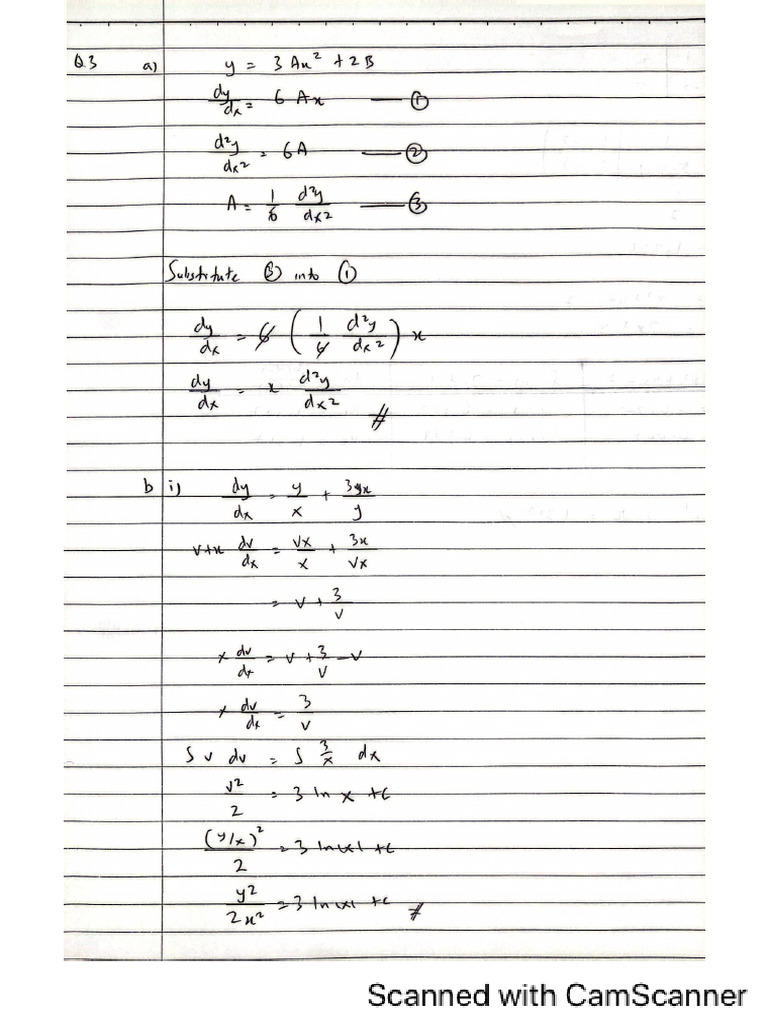 Q.3 a) y = 3Ax² + 2B
dy/dx = 6Ax — ①
d²y/dx² = 6A — ②
A = 1/6 d²y/dx² — ③
Substitute ③ into ①
dy/dx = 6 (1/6 d²y/dx²) x
dy/dx = x d²y/dx² #
b i) dy/dx = y/x + 3x/y
v+x dv/dx = vx/x + 3x/vx
= v + 3/v
x dv/dx = v + 3/v - v
x dv/dx = 3/v
∫ v dv = ∫ 3/x dx
v²/2 = 3 ln x + c
(y/x)²/2 = 3 ln|x| + c
y²/2x² = 3 ln|x| + c #
Scanned with CamScanner